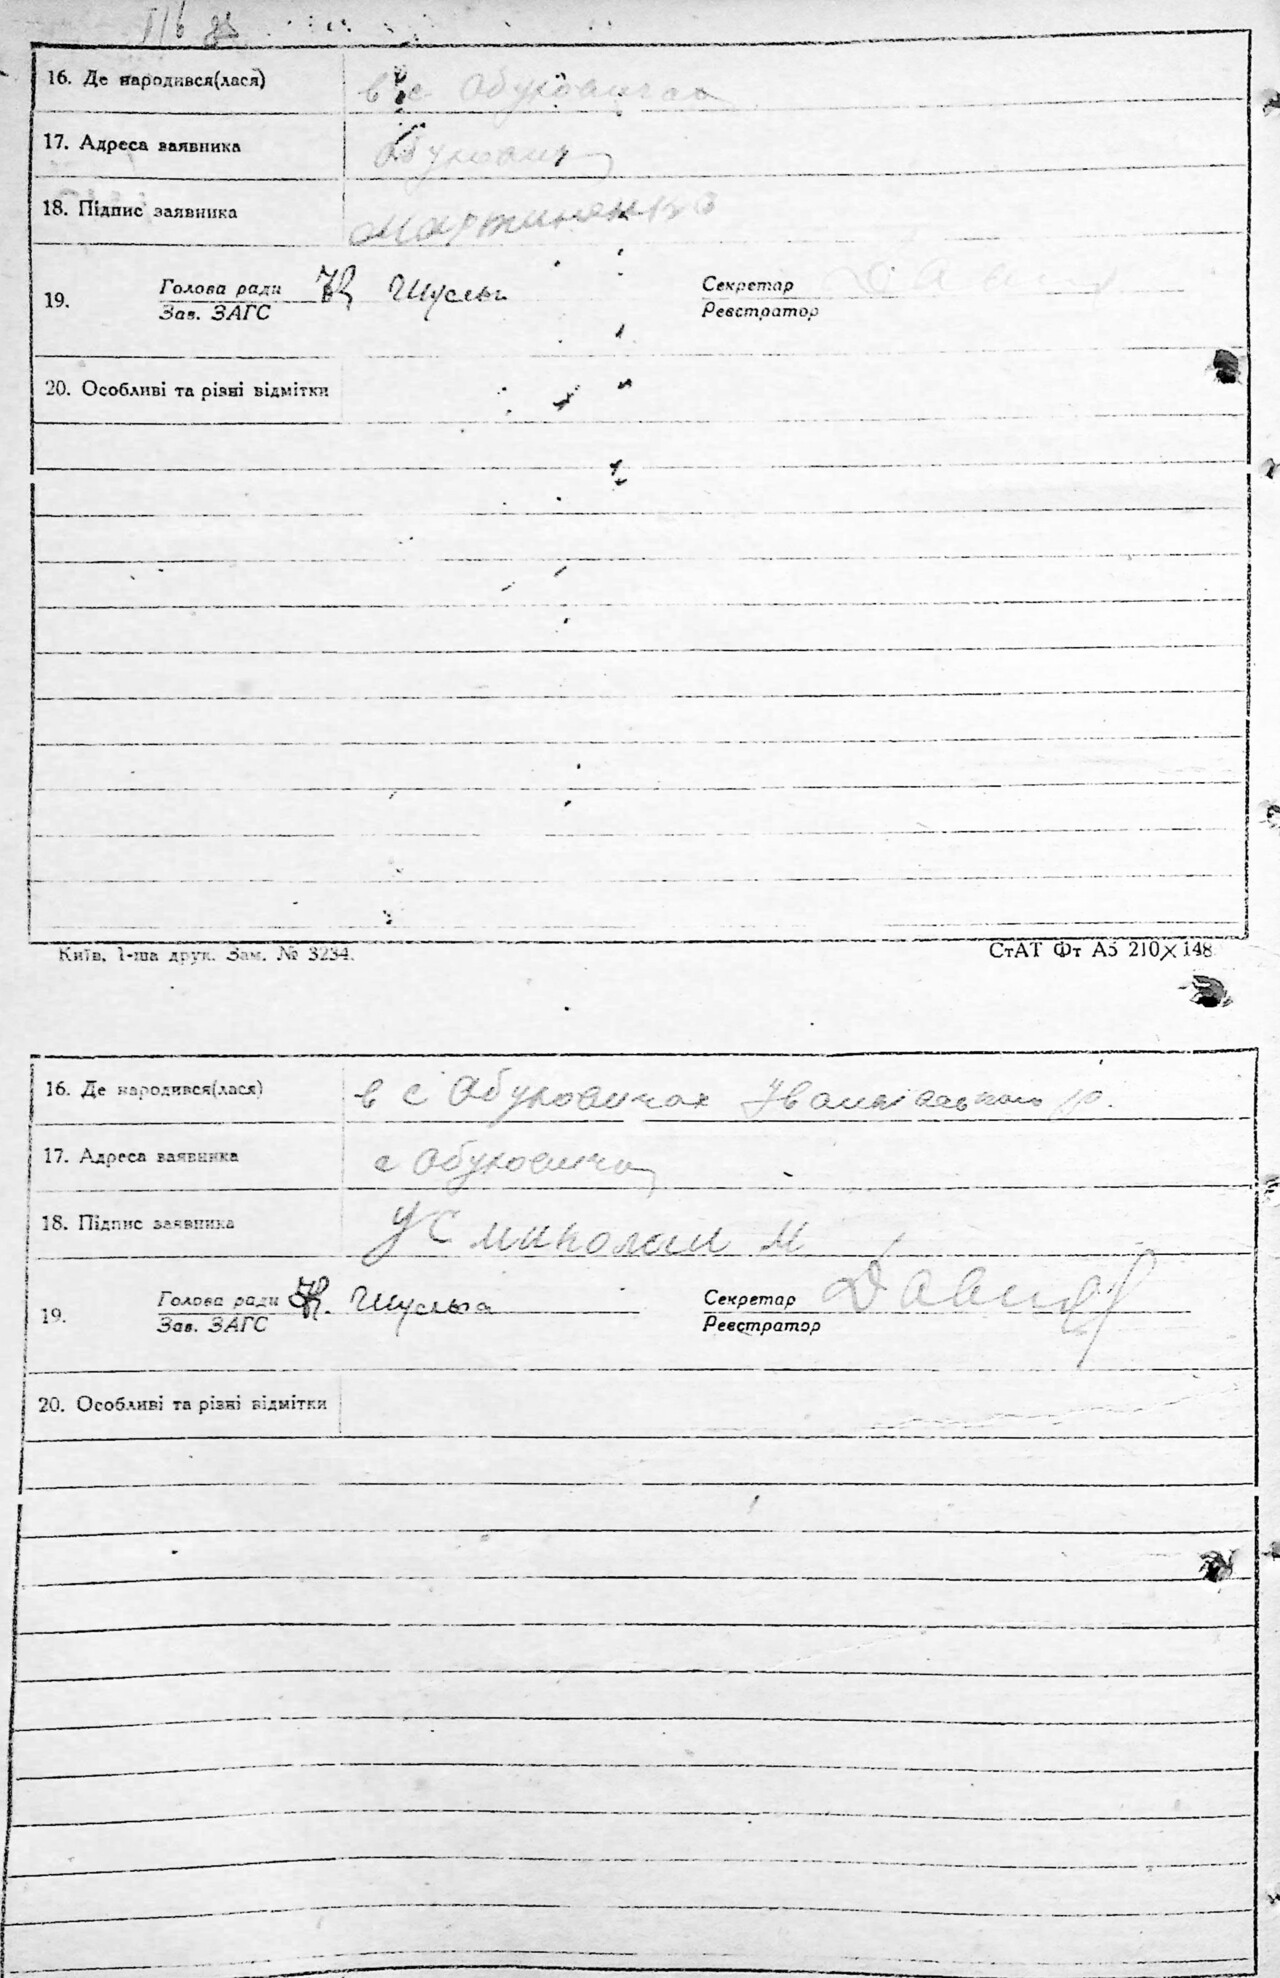 16. Де народився(лася) в с Обуховичах
17. Адреса заявника Обухович
18. Підпис заявника Мартиненко
19. Голова ради Шульга Секретар
Зав. ЗАГС Реєстратор
20. Особливі та різні відмітки
Київ, 1-ша друк. Зам. № 3234. СтАТ Фт А5 210×148
16. Де народився(лася) в с Обуховичах Іванківського р.
17. Адреса заявника с Обуховичи
18. Підпис заявника
19. Голова ради Шульга Секретар
Зав. ЗАГС Реєстратор
20. Особливі та різні відмітки